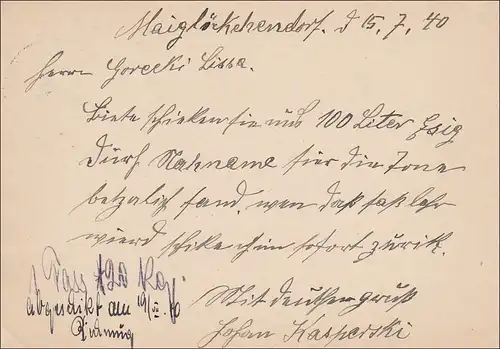 Maiglöckchendorf. d 15. 7. 40
Herrn Gorecki Lissa.
Biete schicken sie uns 100 Liter Esig
durf Nahname für die Tone
betzalich fand, wen daß faß lehr
wierd schike ich im sofort zurik.
Mit deutschen gruß
Johan Kasperski
abgeschikt am 19/VII. 40